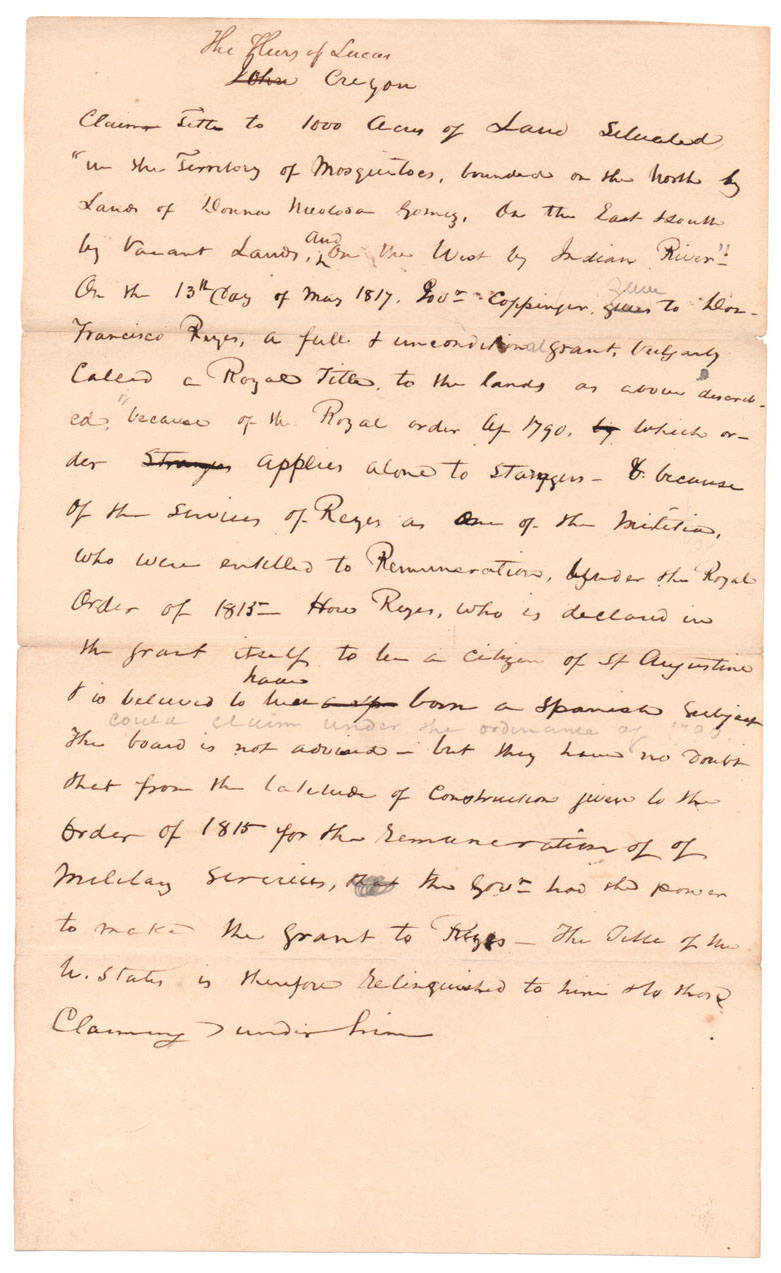 The Heirs of Lucas
John Creyon
Claim Title to 1000 Acres of Land Situated,
"in the Territory of Mosquitoes, bounded on the North by
Lands of Donna Nicolosa Gomez, On the East & South
by Vacant Lands, and On the West by Indian River"
On the 13th Day of May 1817. Govr Coppinger, gave to Don
Francisco Reyes, a full & unconditional grant, vulgarly
Called a Royal Title, to the lands as above describ-
ed, "because of the Royal order of 1790, by which or-
der Stranges applies alone to Stangers - & because
of the Services of Reyes as One of the Militia,
who were entitled to Remuneration, Under the Royal
Order of 1815 - How Reyes, who is declared in
the grant itself to be a Citizen of St Augustine
& is believed to have born a Spanish Subject
could claim under the ordinance of 1790
The board is not advised - but they have no Doubt
that from the latitude of Construction given to the
Order of 1815 for the Remuneration of of
Military Services, that the Govr had the power
to make the Grant to Reyes - The Title of the
U. States is therefore Relinquished to him & to those
Claiming under him